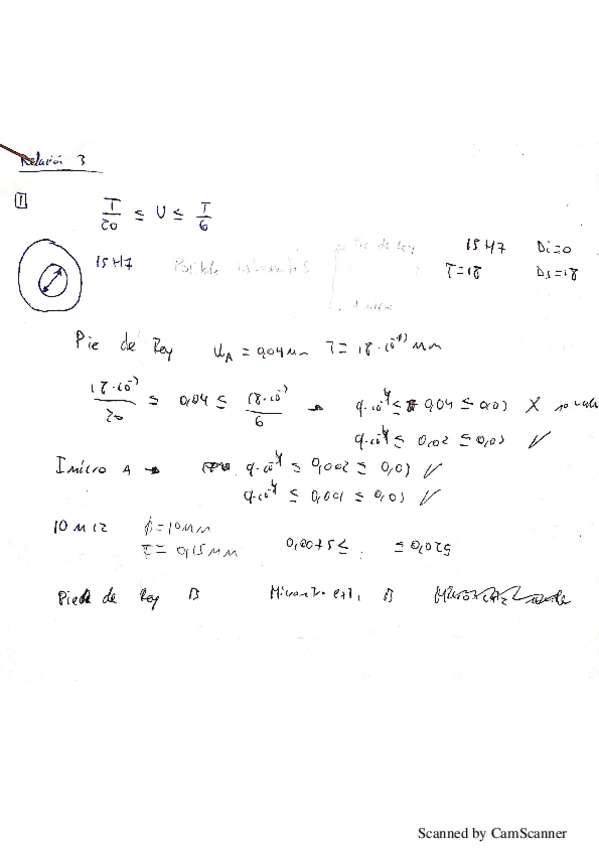 Relación 3
1
T/20 ≤ U ≤ T/6
15 H7 Posible instrumentos Pie de rey 15 H7 Di=0
T=18 Ds=18
Pie de Rey U_A = 0,04 mm T = 18·10⁻³ mm
18·10⁻³/20 ≤ 0,04 ≤ 18·10⁻³/6 → 9·10⁻⁴ ≤ 0,04 ≤ 0,03 X no vale
9·10⁻⁴ ≤ 0,02 ≤ 0,03 ✓
Imicro A → 9·10⁻⁴ ≤ 0,002 ≤ 0,03 ✓
9·10⁻⁴ ≤ 0,001 ≤ 0,03 ✓
10 M 12 ϕ = 10 mm
T = 0,15 mm 0,0075 ≤ ≤ 0,025
Pie de Rey B B
Scanned by CamScanner